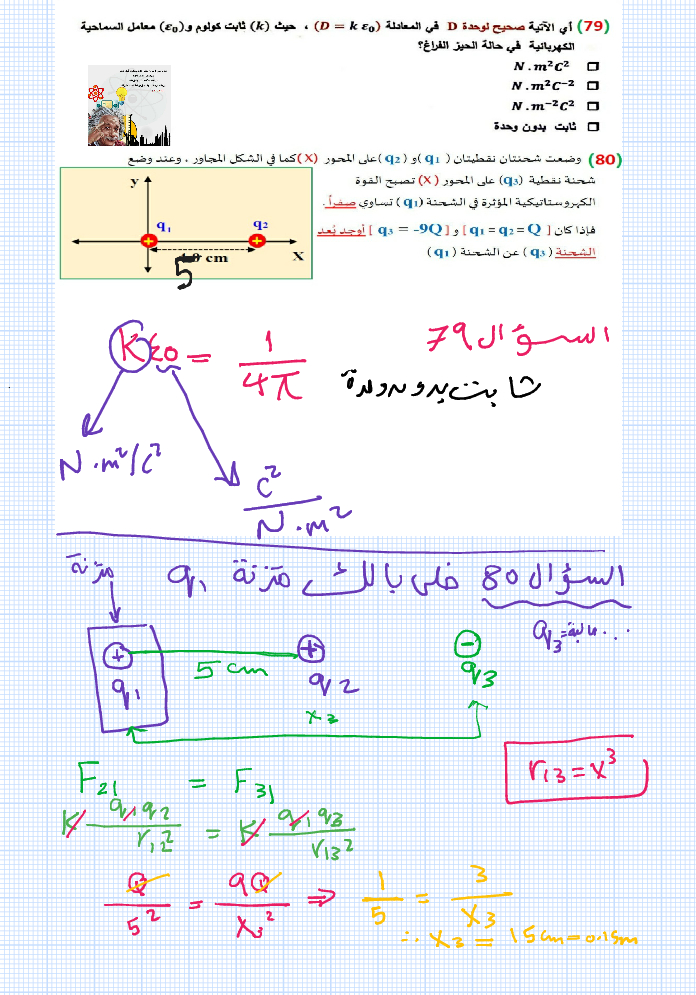 (79) أي الآتية صحيح لوحدة D في المعادلة (D = k ε₀) ، حيث (k) ثابت كولوم و(ε₀) معامل السماحية
الكهربائية في حالة الحيز الفراغ؟
N . m²C²
N . m²C⁻²
N . m⁻²C²
ثابت بدون وحدة
(80) وضعت شحنتان نقطيتان (q₁) و (q₂) على المحور (X) كما في الشكل المجاور ، وعند وضع
شحنة نقطية (q₃) على المحور (X) تصبح القوة
الكهروستاتيكية المؤثرة في الشحنة (q₁) تساوي صفراً.
فإذا كان [q₁ = q₂ = Q] و [q₃ = -9Q] أوجد بُعد
الشحنة (q₃) عن الشحنة (q₁)
y
q₁ q₂
X
cm
5
السؤال 79
Kε₀ = 1/4π
ثابت بدون وحدة
N.m²/C²
C²/N.m²
السؤال 80 خلي بالك متزنة q₁
متزنة
q₃ = سالبة
+ + −
5 cm
q₁ q₂ q₃
x₃
r₁₃ = x³
F₂₁ = F₃₁
K q₁q₂/r₁₂² = K q₁q₃/r₁₃²
Q/5² = 9Q/x₃² ⇒ 1/5 = 3/x₃
∴ x₃ = 15cm = 0.15m